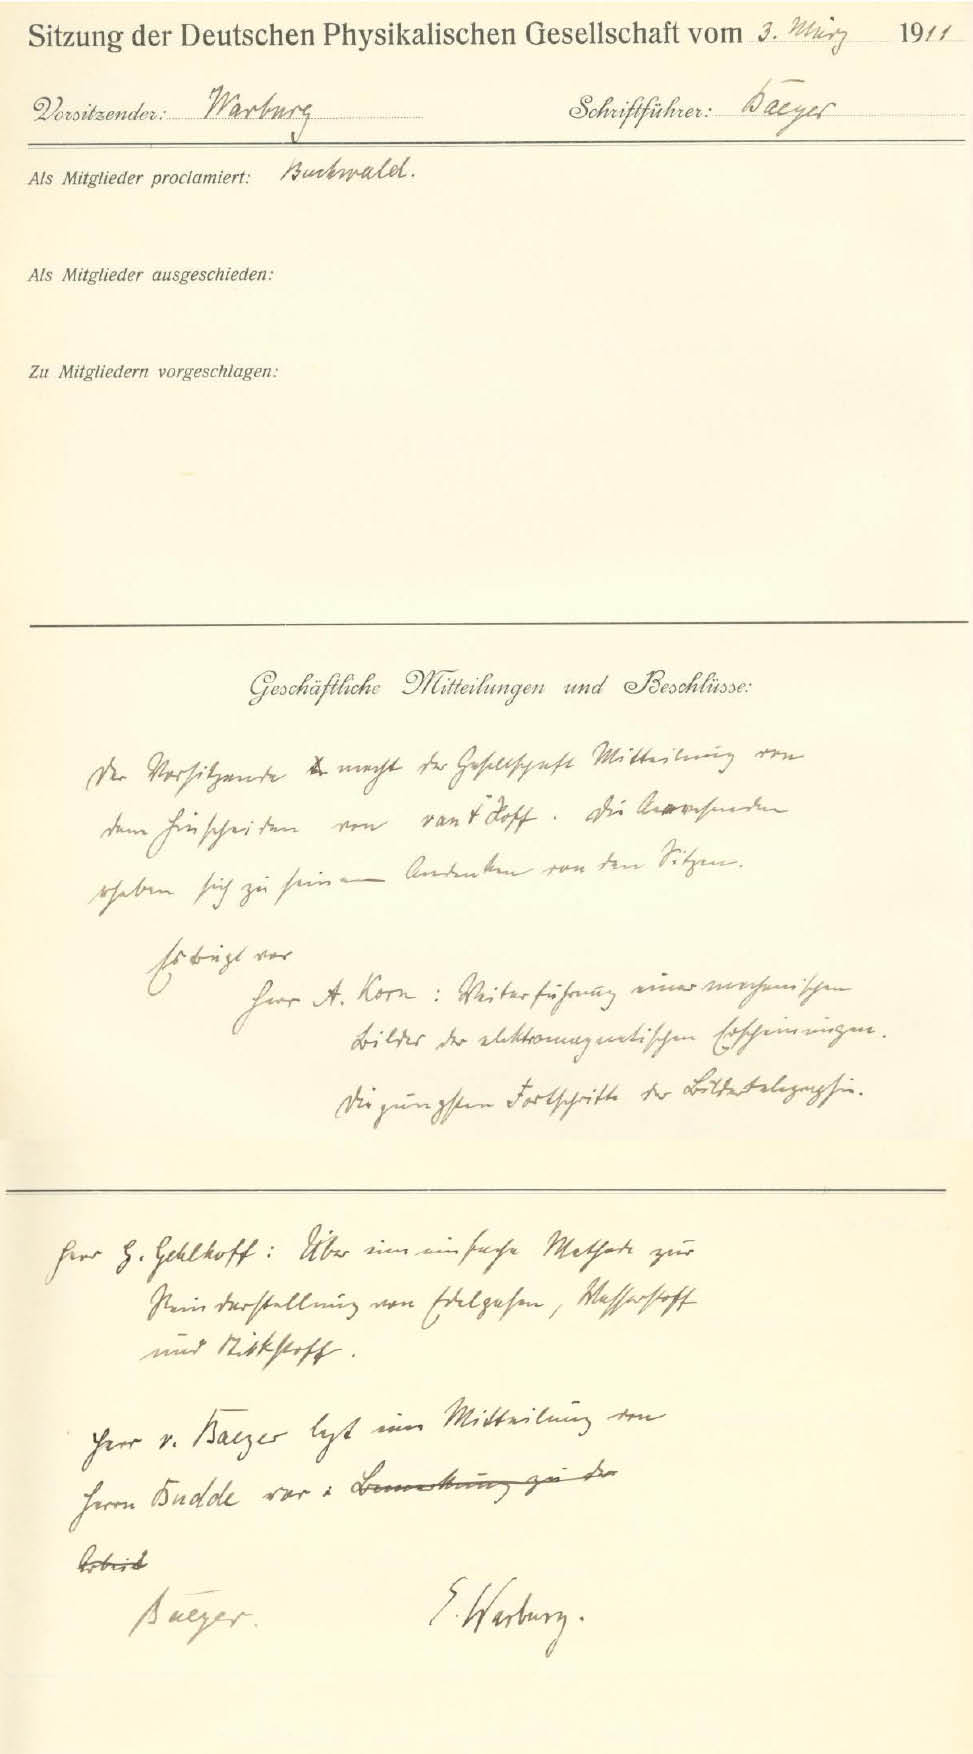 Sitzung der Deutschen Physikalischen Gesellschaft vom 3. März 1911
Vorsitzender: Warburg Schriftführer: Baeyer
Als Mitglieder proclamiert: Buchwald.
Als Mitglieder ausgeschieden:
Zu Mitgliedern vorgeschlagen:
Geschäftliche Mitteilungen und Beschlüsse:
Der Vorsitzende macht der Gesellschaft Mitteilung von
dem Hinscheiden von van't Hoff. Die Anwesenden
erheben sich zu seinem Andenken von den Sitzen.
Es trägt vor
Herr A. Korn: Weiterführung eines mechanischen
Bildes der elektromagnetischen Erscheinungen.
Die jüngsten Fortschritte der Bildertelegraphie.
Herr G. Gehlhoff: Über eine einfache Methode zur
Reindarstellung von Edelgasen, Wasserstoff
und Stickstoff.
Herr v. Baeyer legt eine Mitteilung von
Herrn Budde vor: Bemerkung zu der
Arbeit
Baeyer. E. Warburg.